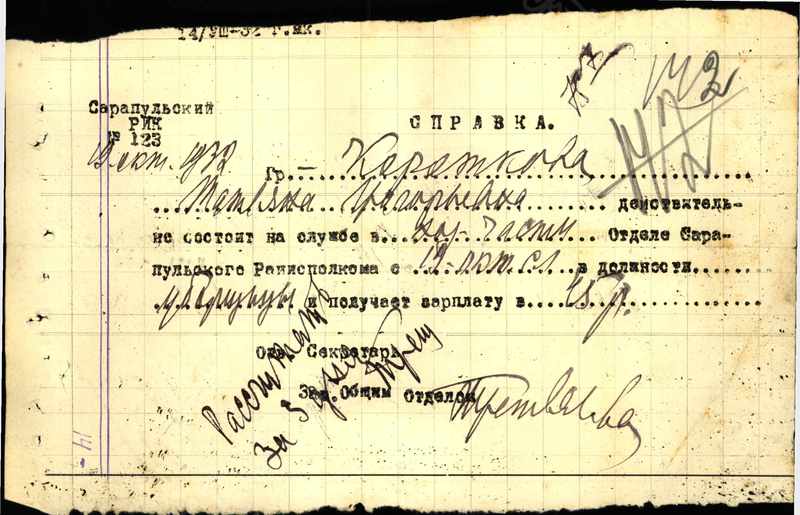 14/VIII-32 г.мк.
Сарапульский
РИК
№ 123
СПРАВКА.
142
172
Гр. Короткова
Татьяна Григорьевна действитель-
но состоит на службе в хоз-части Отделе Сара-
пульского Райисполкома с 19 в должности
уборщицы и получает зарплату в 45 р.
Отв. Секретарь
Зав. Общим Отделом Третьякова
Рассчитать
за 5 дней
Трет
14-